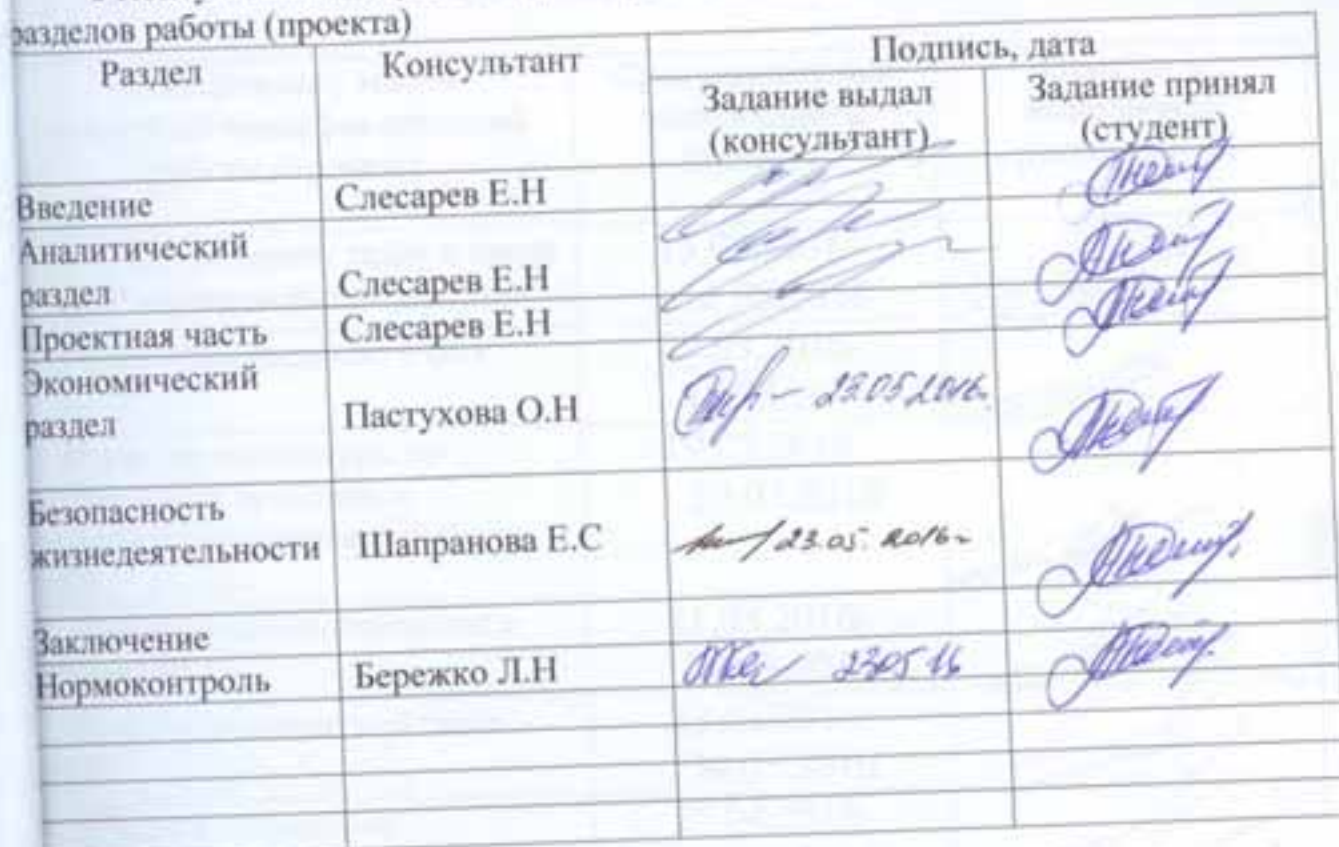 разделов работы (проекта)
Раздел
Консультант
Подпись, дата
Задание выдал
(консультант)
Задание принял
(студент)
Введение
Слесарев Е.Н
Аналитический
раздел
Слесарев Е.Н
Проектная часть
Слесарев Е.Н
Экономический
раздел
Пастухова О.Н
23.05.2016г.
Безопасность
жизнедеятельности
Шапранова Е.С
23.05.2016г
Заключение
Нормоконтроль
Бережко Л.Н
23.05 16